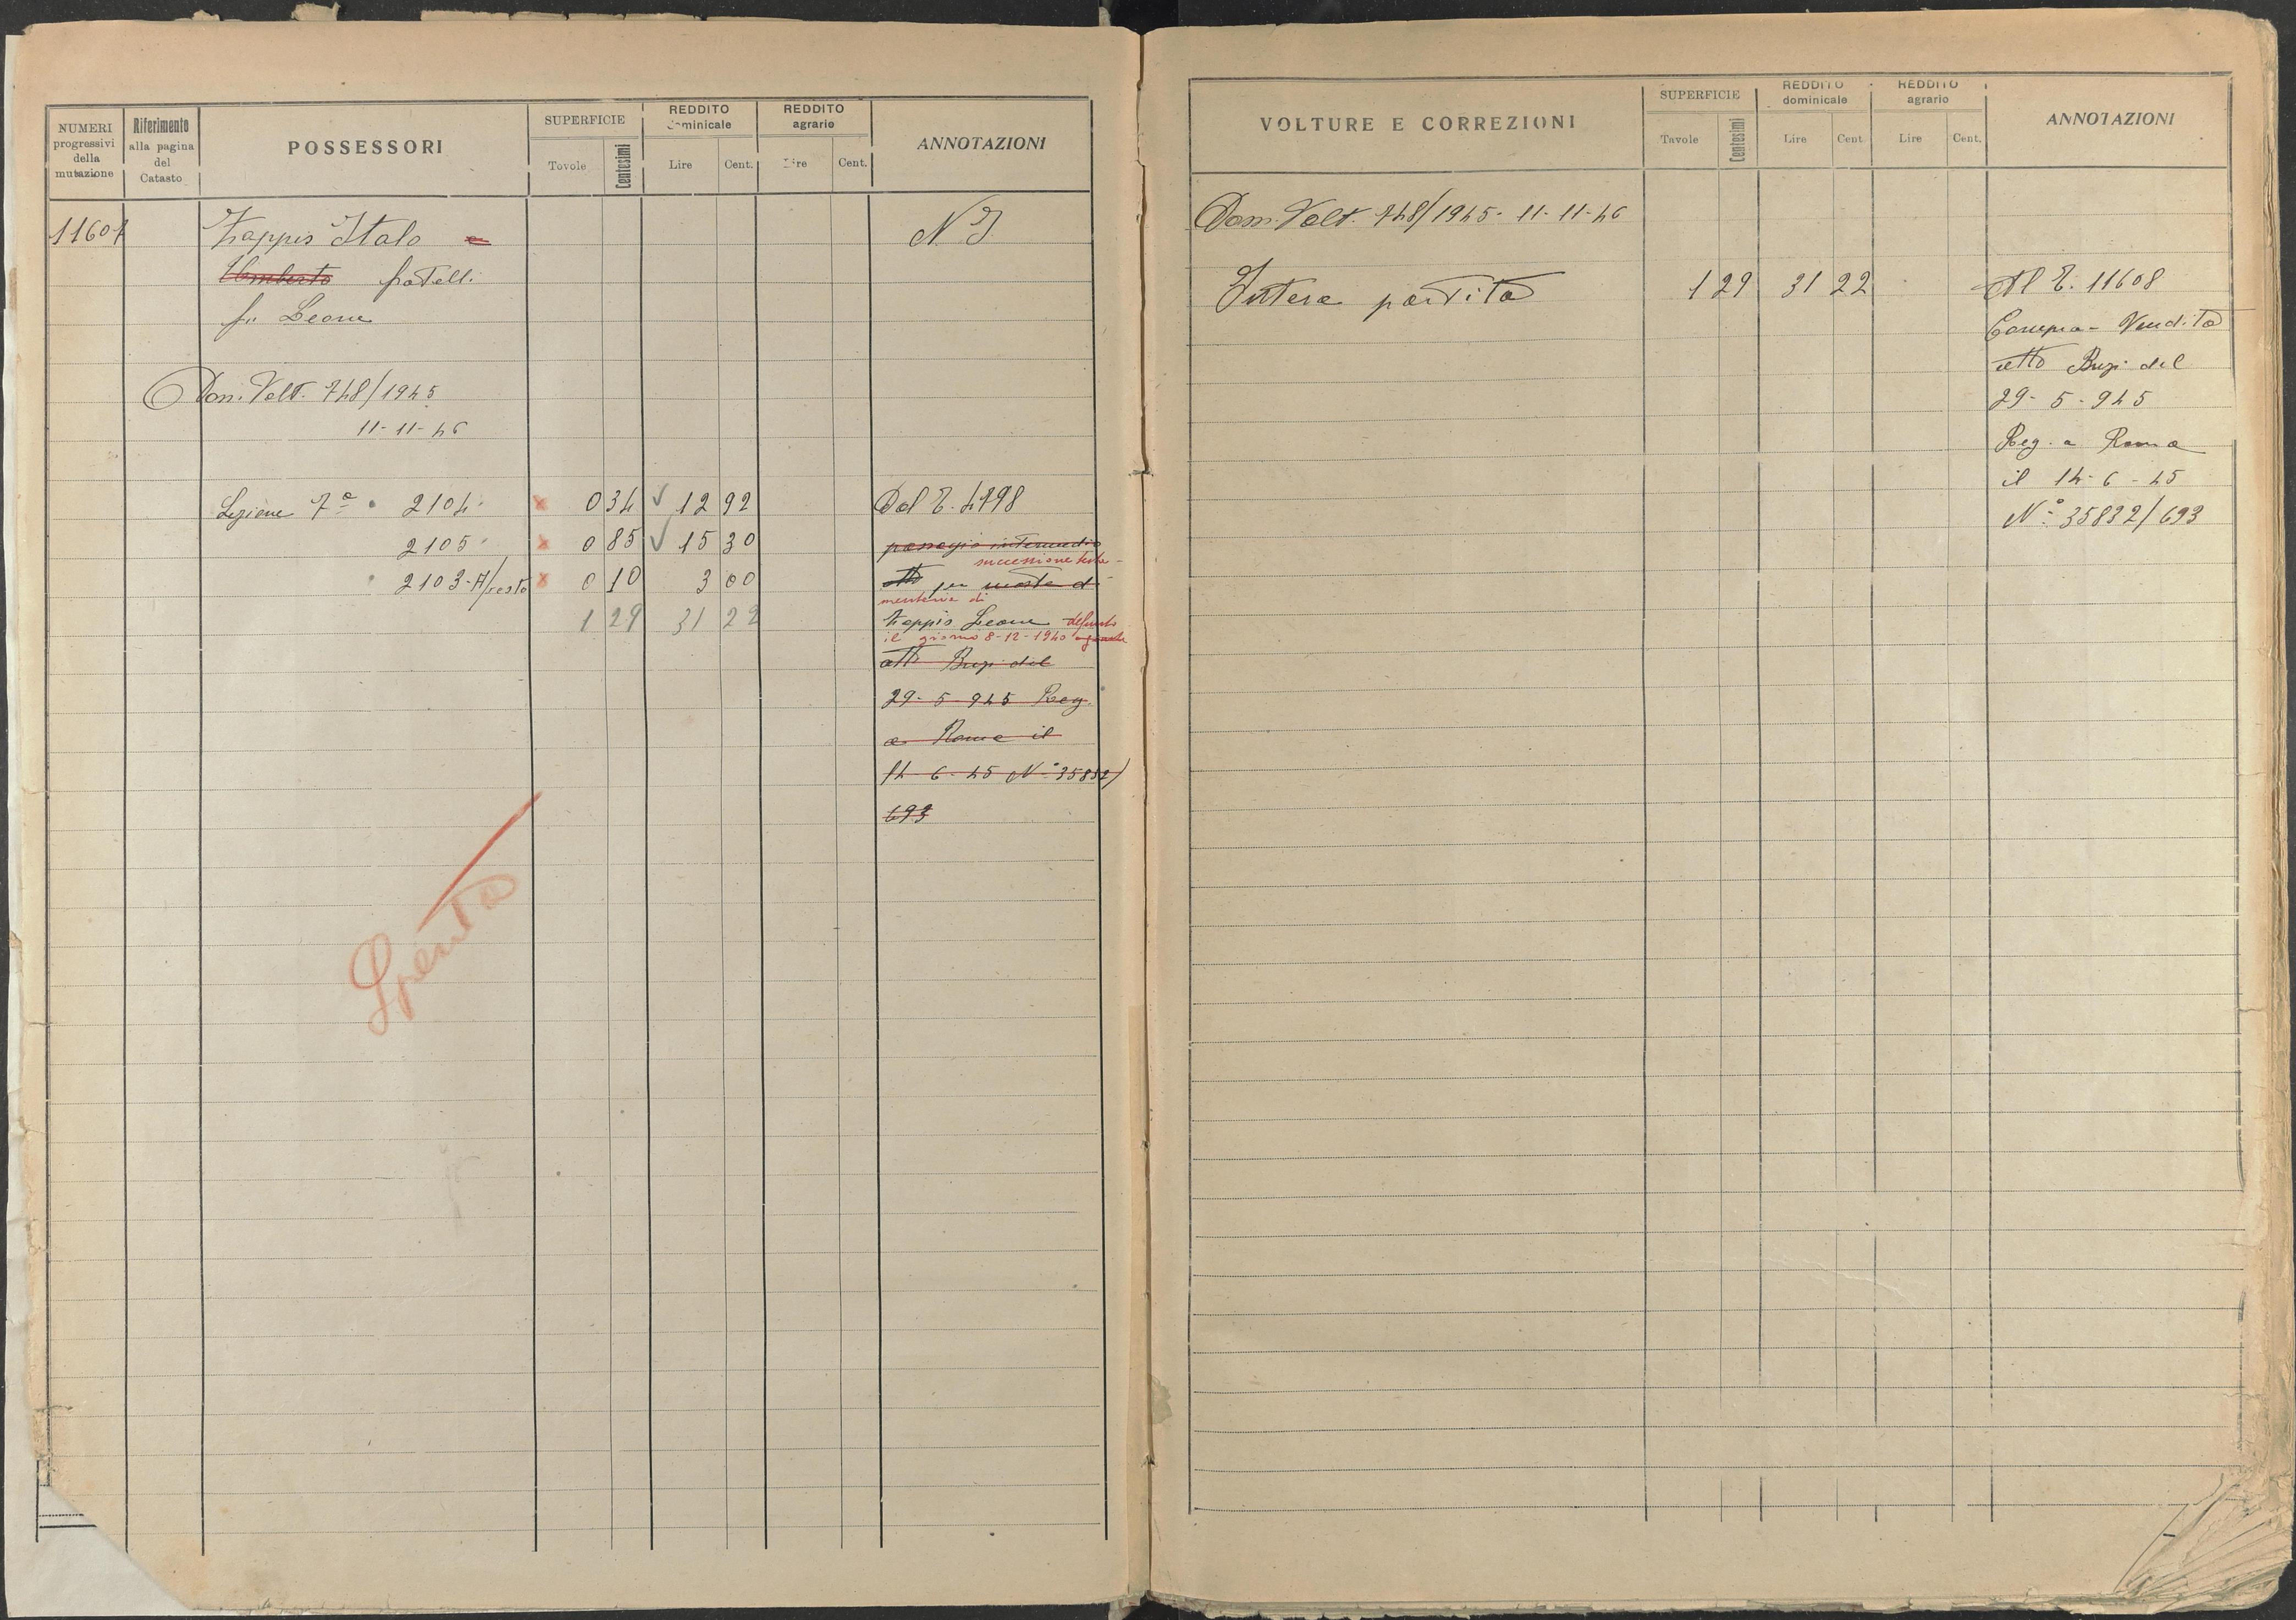 NUMERI progressivi della mutazione
Riferimento alla pagina del Catasto
POSSESSORI
SUPERFICIE
Tavole
Centesimi
REDDITO dominicale
Lire
Cent.
REDDITO agrario
Lire
Cent.
ANNOTAZIONI
11607
Zappis Italo e
N I
Umberto fratelli
fu Leone
Dom. Volt. 748/1945
11-11-46
Sezione 7ª 2104 0 34 12 92 Dal T. 4798
2105 0 85 15 30 passagio intermedio
successione testa-
2103-A/resto 0 10 3 00 atto per morte di
mentaria di
1 29 31 22 Zappis Leone defunto
il giorno 8-12-1940
atto Buzi del
29-5-945 Reg.
a Roma il
14-6-45 N° 35832/
693
Spenta
VOLTURE E CORREZIONI
SUPERFICIE
Tavole
Centesimi
REDDITO dominicale
Lire
Cent
REDDITO agrario
Lire
Cent.
ANNOTAZIONI
Dom. Volt. 748/1945- 11-11-46
Intera partita 1 29 31 22 Al T. 11608
Compra-Vendita
atto Buzi del
29-5-945
Reg. a Roma
il 14-6-45
N° 35832/693